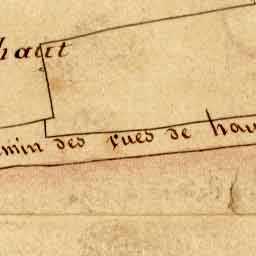 haut
min des rues de hau